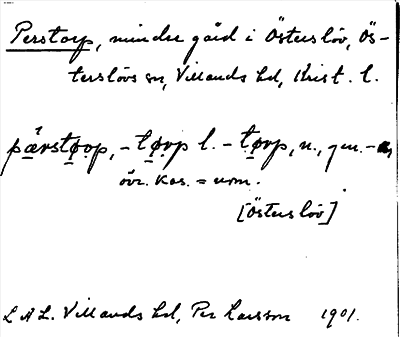 Perstorp, mindre gård i Österslöv, Ös-
terslövs sn, Villands hd, Krist. l.
pærstǫrp, -tǫrp l. -tǫrp, n., gen. -s,
övr. kas. = nom.
[Österslöv]
LAL. Villands hd, Per Larsson 1901.